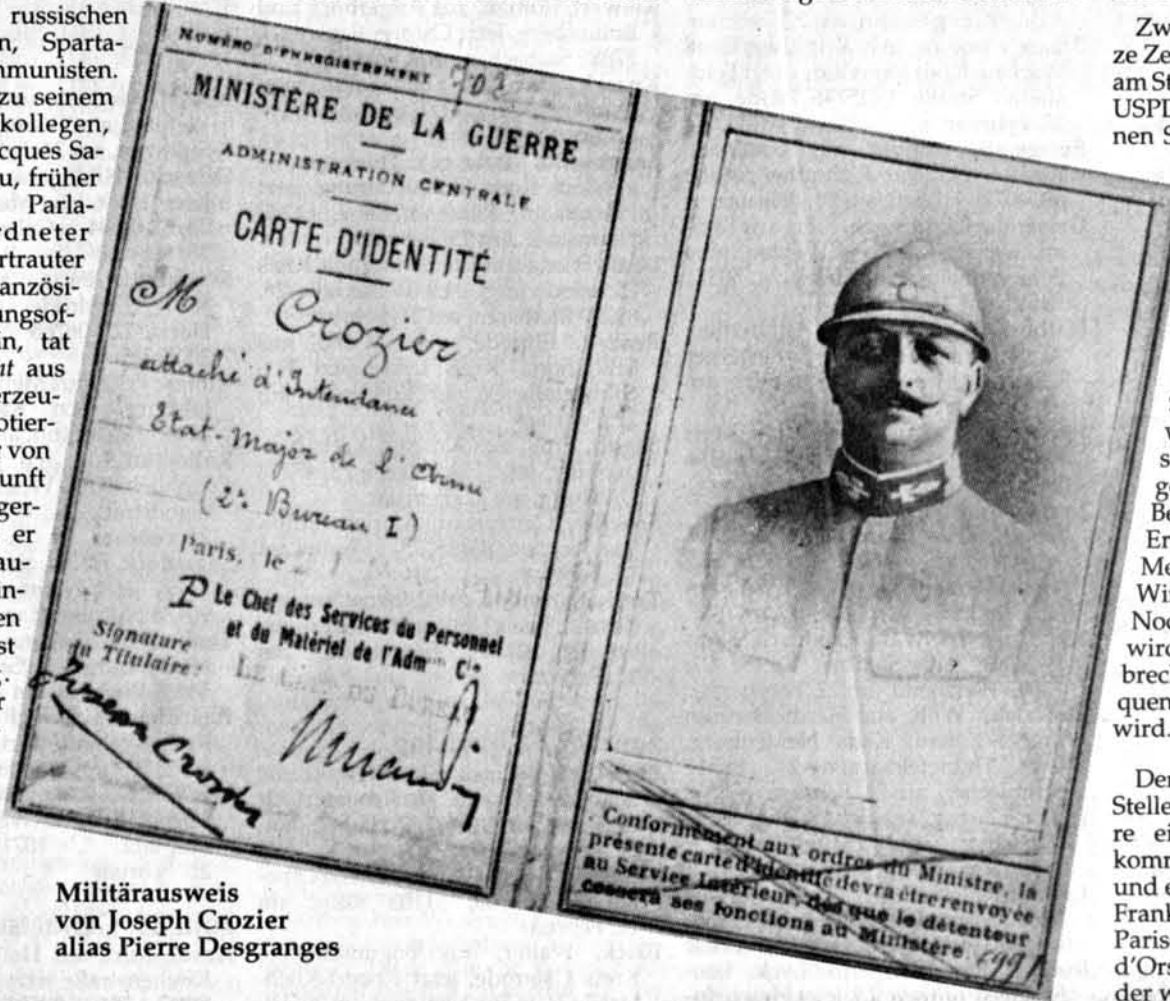 russischen
n, Sparta-
mmunisten.
zu seinem
kollegen,
cques Sa-
u, früher
Parla-
rdneter
rtrauter
anzösi-
ungsof-
in, tat
ut aus
erzeu-
otier-
r von
unft
ger-
er
au-
in-
en
st
r
NUMÉRO D'ENREGISTREMENT 703
MINISTÈRE DE LA GUERRE
ADMINISTRATION CENTRALE
CARTE D'IDENTITÉ
M Crozier
attaché d'Intendance
Etat-Major de l'Armée
(2e Bureau I)
Paris, le
P Le Chef des Services du Personnel
et du Matériel de l'Adm Cle
LE CHEF DU BUREAU
Signature
du Titulaire:
Joseph Crozier
Conformément aux ordres du Ministre, la
présente carte d'identité devra être renvoyée
au Service Intérieur, dès que le détenteur
cessera ses fonctions au Ministère.
Militärausweis
von Joseph Crozier
alias Pierre Desgranges
Zw
ze Ze
am St
USPI
nen S
w
s
ge
Be
Er
Me
Wi
Noc
wird
brec
quen
wird.
Der
Stelle
re ei
komm
und e
Frank
Paris
d'Ors
der w